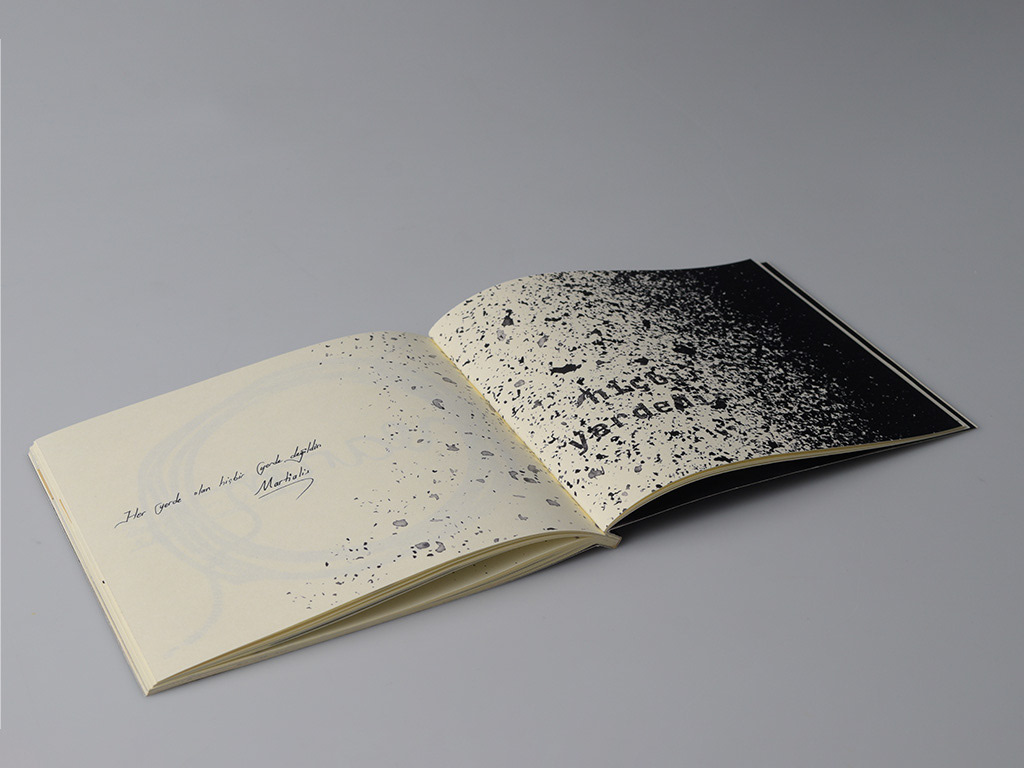 Her yerde olan hiçbir yerde değildir
Martialis
hiçbir
yerde